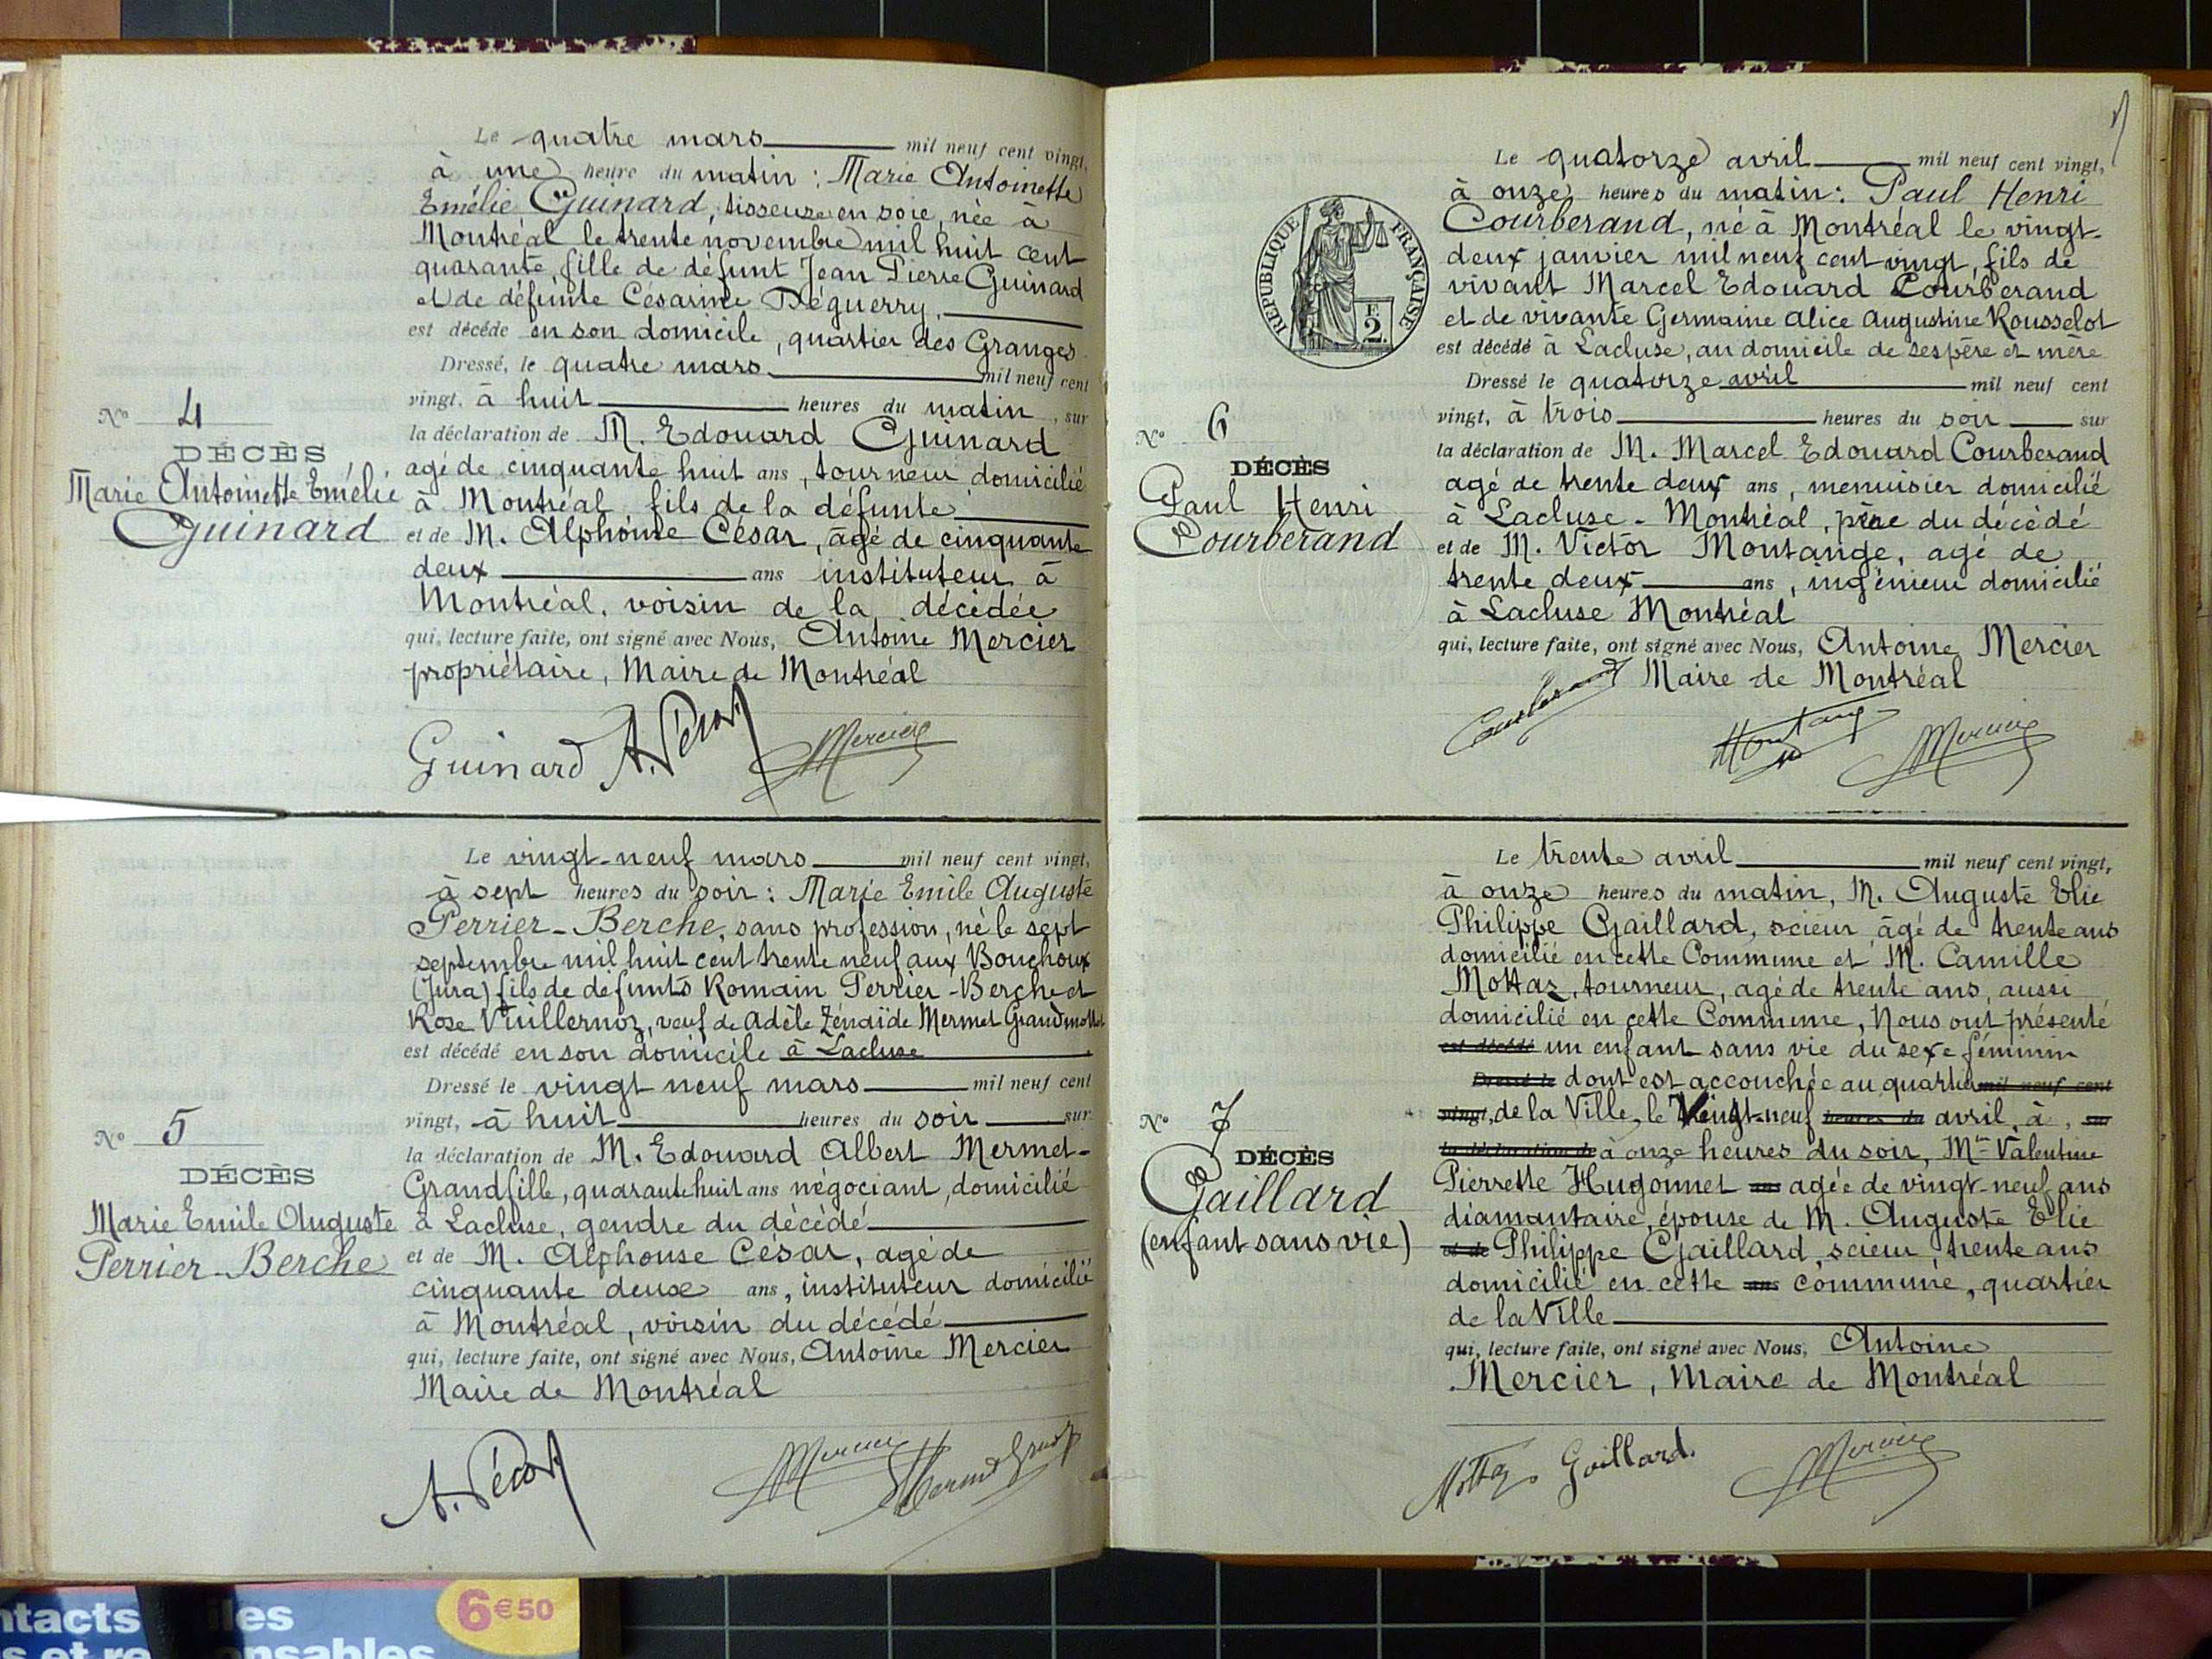 Le quatre mars mil neuf cent vingt,
à une heure du matin : Marie Antoinette
Emélie Guinard, tisseuse en soie, née à
Montréal le trente novembre mil huit cent
quarante, fille de défunt Jean Pierre Guinard
et de défunte Césarine Déguerry,
est décédé en son domicile, quartier des Granges
Dressé, le quatre mars mil neuf cent
vingt, à huit heures du matin, sur
la déclaration de M. Edouard Guinard
agé de cinquante huit ans, tourneur domicilié
à Montréal, fils de la défunte
et de M. Alphonse César, âgé de cinquante
deux ans instituteur à
Montréal, voisin de la décédée
qui, lecture faite, ont signé avec Nous, Antoine Mercier
propriétaire, Maire de Montréal
Guinard Mercier
No 4
DÉCÈS
Marie Antoinette Emélie
Guinard
Le vingt-neuf mars mil neuf cent vingt,
à sept heures du soir : Marie Emile Auguste
Perrier-Berche, sans profession, né le sept
septembre mil huit cent trente neuf aux Bouchoux
(Jura) fils de défunts Romain Perrier-Berche et
Rose Vuillermoz, veuf de Adèle Zénaïde Mermet Grandmottet
est décédé en son domicile à Lacluse
Dressé le vingt neuf mars mil neuf cent
vingt, à huit heures du soir sur
la déclaration de M. Edouard Albert Mermet-
Grandfille, quarante huit ans négociant, domicilié
à Lacluse, gendre du décédé
et de M. Alphouse César, agé de
cinquante deux ans, instituteur domicilié
à Montréal, voisin du décédé
qui, lecture faite, ont signé avec Nous, Antoine Mercier
Maire de Montréal
Mercier
No 5
DÉCÈS
Marie Emile Auguste
Perrier-Berche
Le quatorze avril mil neuf cent vingt,
à onze heures du matin : Paul Henri
Courberand, né à Montréal le vingt-
deux janvier mil neuf cent vingt, fils de
vivant Marcel Edouard Courberand
et de vivante Germaine Alice Augustine Rousselot
est décédé à Lacluse, au domicile de ses père et mère
Dressé le quatorze avril mil neuf cent
vingt, à trois heures du soir sur
la déclaration de M. Marcel Edouard Courberand
agé de trente deux ans, menuisier domicilié
à Lacluse-Montréal, père du décédé
et de M. Victor Montange, agé de
trente deux ans, ingénieur domicilié
à Lacluse Montréal
qui, lecture faite, ont signé avec Nous, Antoine Mercier
Maire de Montréal
Courberand Montange Mercier
REPUBLIQUE FRANÇAISE
F. 2.
No 6
DÉCÈS
Paul Henri
Courberand
Le trente avril mil neuf cent vingt,
à onze heures du matin, M. Auguste Elie
Philippe Gaillard, scieur âgé de trente ans
domicilié en cette Commune et M. Camille
Mottaz, tourneur, agé de trente ans, aussi
domicilié en cette Commune, Nous ont présenté
est décédé un enfant sans vie du sexe féminin
Dressé le dont est accouchée au quartier mil neuf cent
vingt, de la Ville, le Vingt-neuf heures du avril, à, sur
la déclaration de à onze heures du soir, Mme Valentine
Pierrette Hugonnet ans agée de vingt-neuf ans
diamantaire, épouse de M. Auguste Elie
et de Philippe Gaillard, scieur, trente ans
domicilié en cette ans commune, quartier
de la Ville
qui, lecture faite, ont signé avec Nous, Antoine
Mercier, Maire de Montréal
Mottaz Gaillard. Mercier
No 7
DÉCÈS
Gaillard
(enfant sans vie)
ntacts les
s et re nsables
6€50